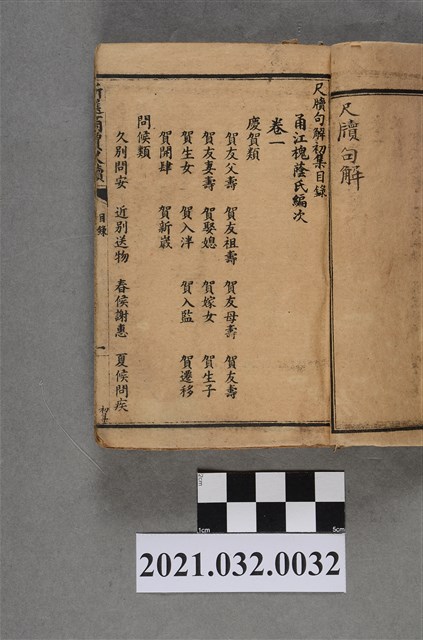 尺牘句解
尺牘句解初集目錄
甬江槐蔭氏編次
卷一
慶賀類
賀友父壽 賀友祖壽 賀友母壽 賀友壽
賀友妻壽 賀娶媳 賀嫁女 賀生子
賀生女 賀入泮 賀入監 賀遷移
賀開肆 賀新歲
問候類
久別問安 近別送物 春候謝惠 夏候問疾
目錄
一
2cm
1cm
5cm
2021.032.0032